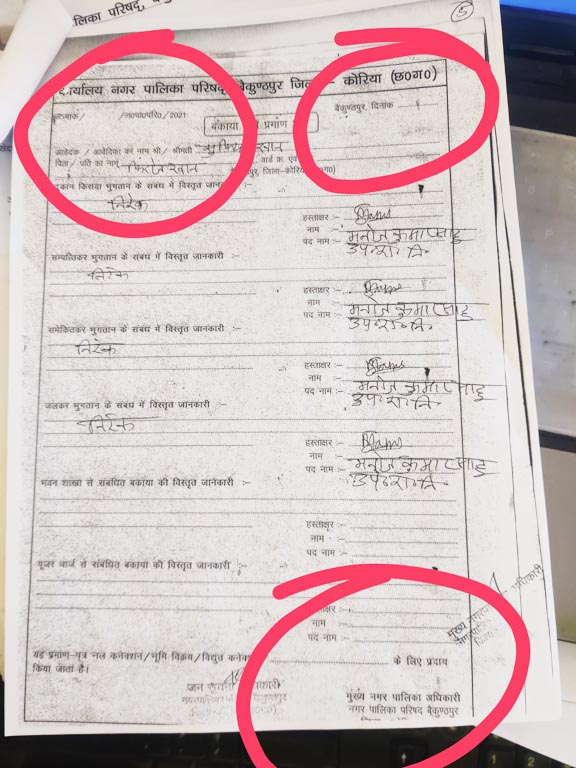 पालिका परिषद,
5
कार्यालय नगर पालिका परिषद, बैकुण्ठपुर जिला – कोरिया (छ०ग०)
/न०पा०परि०/2021
बैकुण्ठपुर, दिनांक
बकाया प्रमाण
आवेदक / आवेदिका का नाम श्री/ श्रीमती
पिता/ पति का नाम फिरोज खान वार्ड क्र. एवं
जिला-कोरिया
दुकान किराया भुगतान के संबंध में विस्तृत जानकारी
निरंक
हस्ताक्षर :-
नाम :- मनोज कुमार साहू
पद नाम :-
सम्पत्तिकर भुगतान के संबंध में विस्तृत जानकारी :-
निरंक
हस्ताक्षर :-
नाम :- मनोज कुमार साहू
पद नाम :-
समेकितकर भुगतान के संबंध में विस्तृत जानकारी :-
निरंक
हस्ताक्षर :-
नाम :- मनोज कुमार साहू
पद नाम :-
जलकर भुगतान के संबंध में विस्तृत जानकारी :-
निरंक
हस्ताक्षर :-
नाम :- मनोज कुमार साहू
पद नाम :-
भवन शाखा से संबंधित बकाया की विस्तृत जानकारी :-
हस्ताक्षर :-
नाम :-
पद नाम :-
यूजर चार्ज से संबंधित बकाया की विस्तृत जानकारी :-
हस्ताक्षर :-
नाम :-
पद नाम :-
यह प्रमाण-पत्र नल कनेक्शन/भूमि विक्रय/विद्युत कनेक्शन के लिए प्रदाय
किया जाता है।
जन सूचना अधिकारी
मुख्य नगर पालिका अधिकारी
नगर पालिका परिषद बैकुण्ठपुर